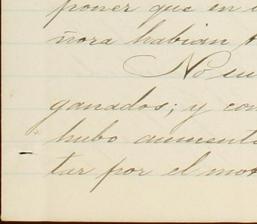 poner que en
ñora habian
No
ganados; y con
hubo aument
tar por el mo